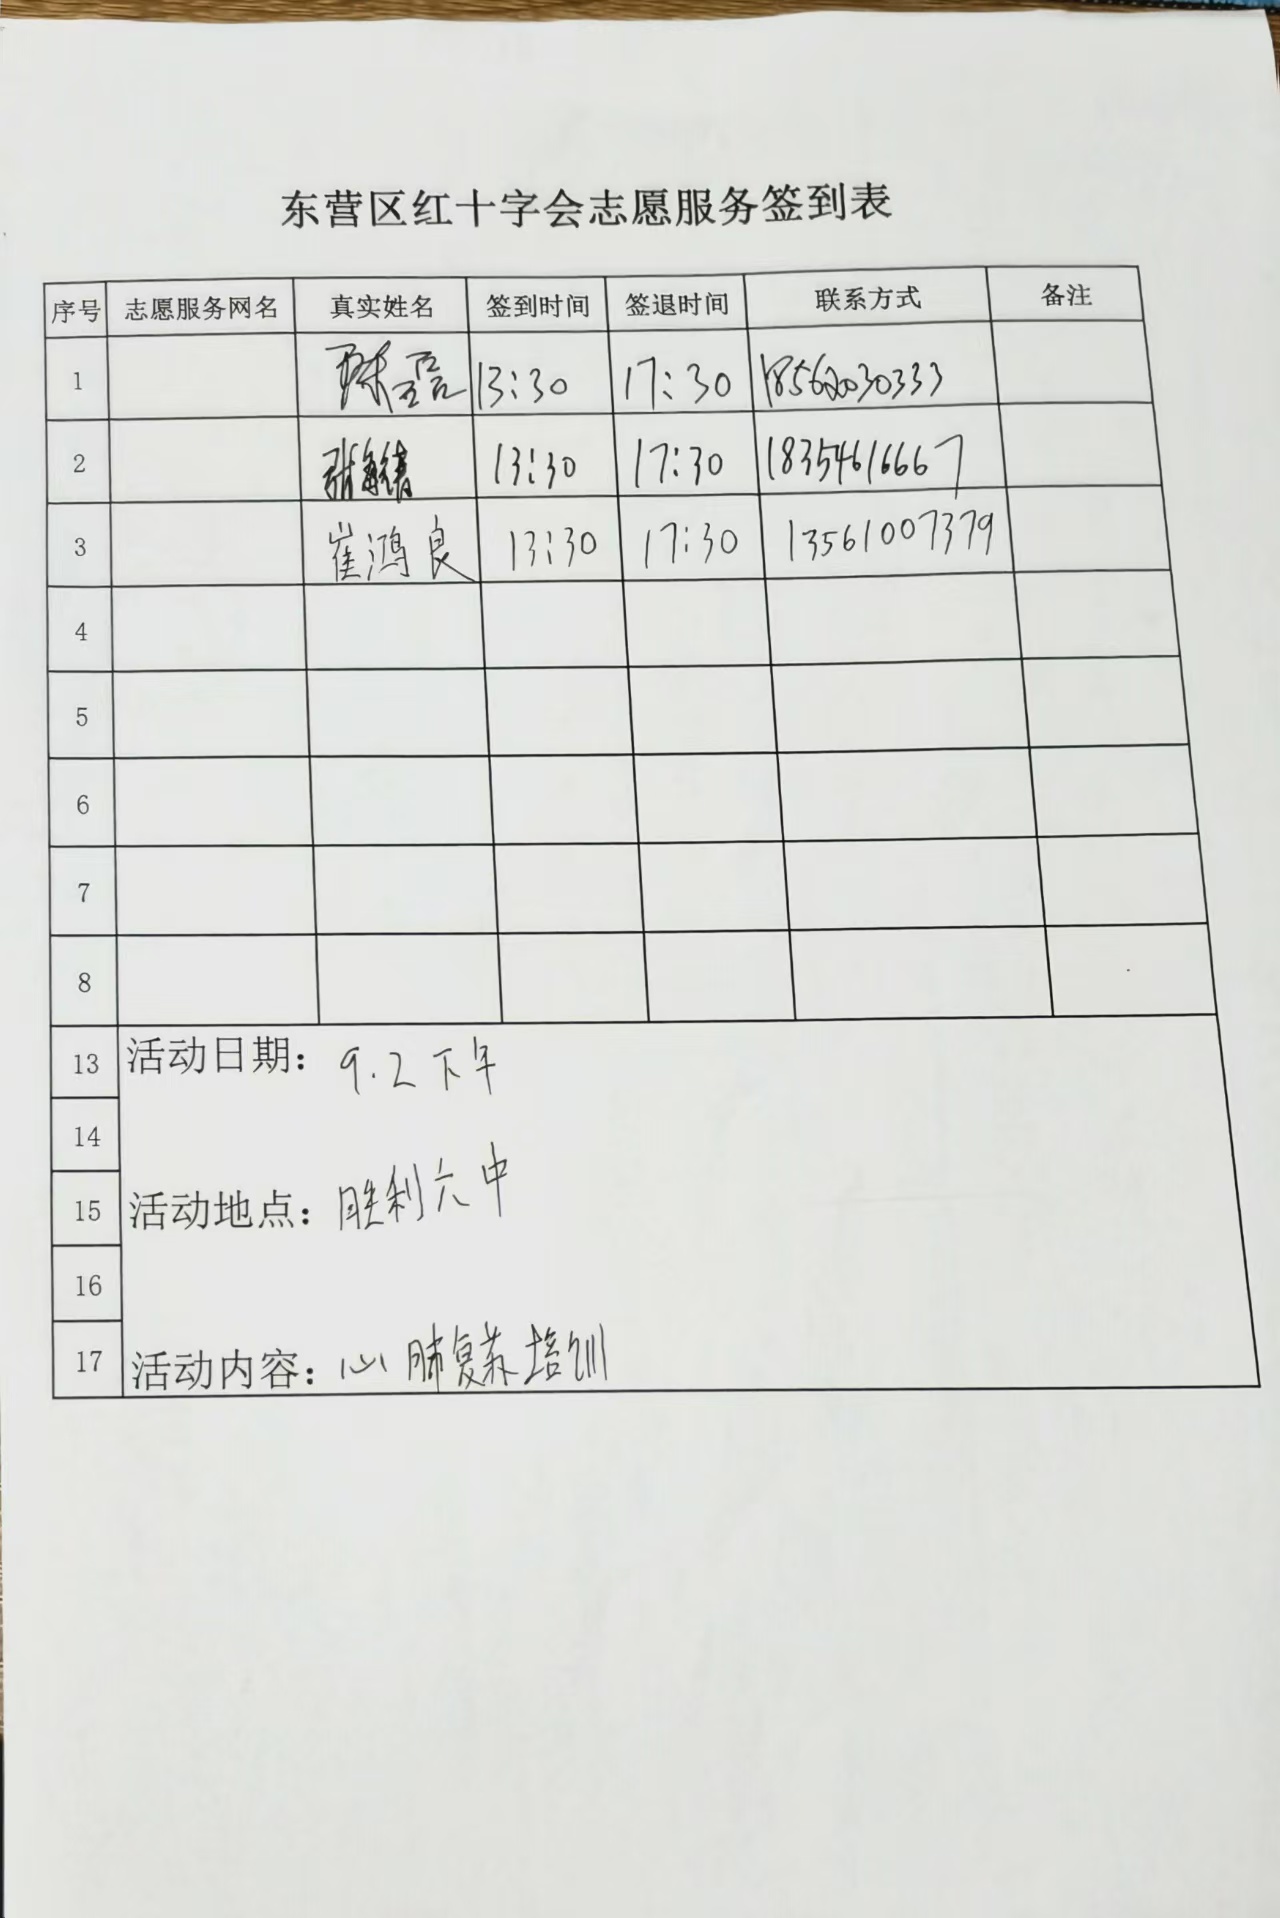 东营区红十字会志愿服务签到表
序号 志愿服务网名 真实姓名 签到时间 签退时间 联系方式 备注
1 13:30 17:30 18562030333
2 张 13:30 17:30 18354616667
3 崔鸿良 13:30 17:30 13561007379
4
5
6
7
8
13 活动日期: 9.2 下午
14
15 活动地点: 胜利六中
16
17 活动内容: 心肺复苏培训